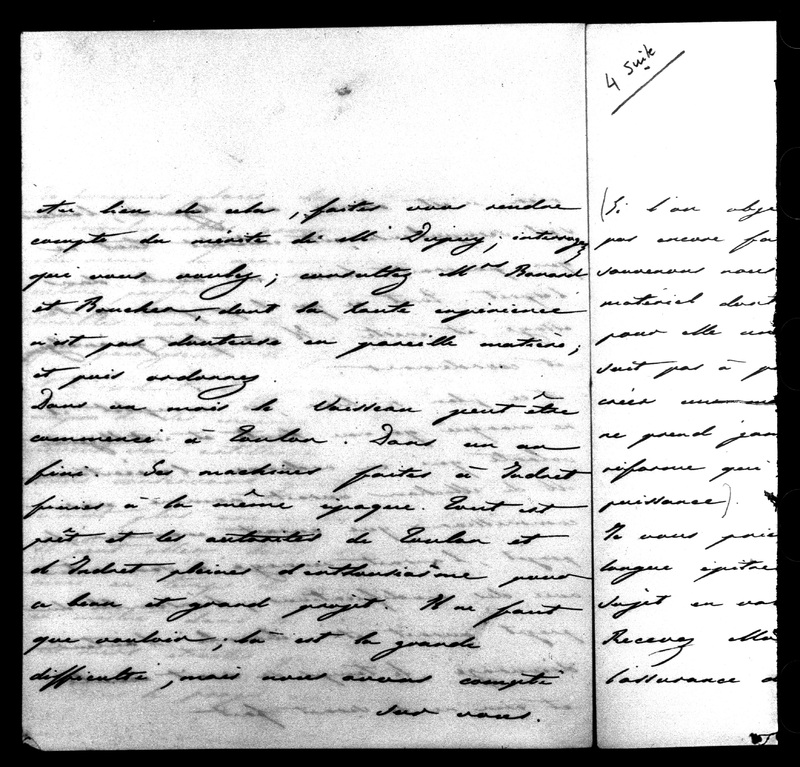 Au lieu de cela, faites vous rendre
compte du mérite de Mr Dupuy; interrogez
qui vous voulez; consultez Mrs Bonard
et Boucher, dont la haute expérience
n'est pas douteuse en pareille matière;
et puis ordonnez.
Dans un mois le Vaisseau peut être
commencé à Toulon. Dans un an
fini. Ses machines faites à Indret
finies à la même époque. Tout est
prêt et les autorités de Toulon et
d'Indret pleines d'enthousiasme pour
ce beau et grand projet. Il ne faut
que vouloir; là est la grande
difficulté, mais nous avons compté
sur vous.
4 Suite
(Si l'on obje
pas encore fa
souvenons nous
matériel dont
pour elle
soit pas à p
créer une
ne prend jam
réforme qui
puissance).
Je vous prie
longue épitre
sujet en va
Recevez
l'assurance d